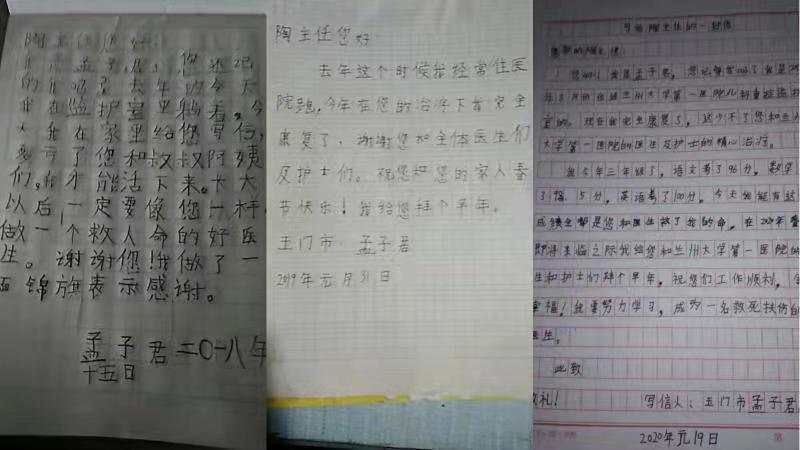 陶主任您好:
我是孟子君,您还记
的我吗?去年的今天
我在监护室里躺着。今
天我在家里给您写信,
我亏了您和叔叔阿姨
们。我才能活下来。长大
以后,一定要像您一样,
做一个救人命的好医
生。谢谢您!我做了一
面锦旗表示感谢。
孟子君二〇一八年
十五日
陶主任您好:
去年这个时候我经常住医
院跑,今年在您的治疗下我完全
康复了,谢谢您和全体医生们
及护士们。祝您和您的家人春
节快乐!我给您拜个早年。
玉门市:孟子君
2019年元月31日
写给陶主任的一封信
您好!我是孟子君,
年 月份在兰州大学第一医院儿科重症监护
室的。现在我完全康复了,这少不了您和兰州
大学第一医院的医生及护士的精心治疗。
我今年三年级了,语文考了96分,数学
了 5分,英语考了100分。今天我能有这
成绩全都是您和医生救了我的命。在2020年春
即将来临之际我给您和兰州大学第一医院的
生和护士们拜个早年。祝您们工作顺利,
幸福!我要努力学习,成为一名救死扶伤的
医生。
此致
敬礼!
写信人:玉门市孟子君
2020年元19日